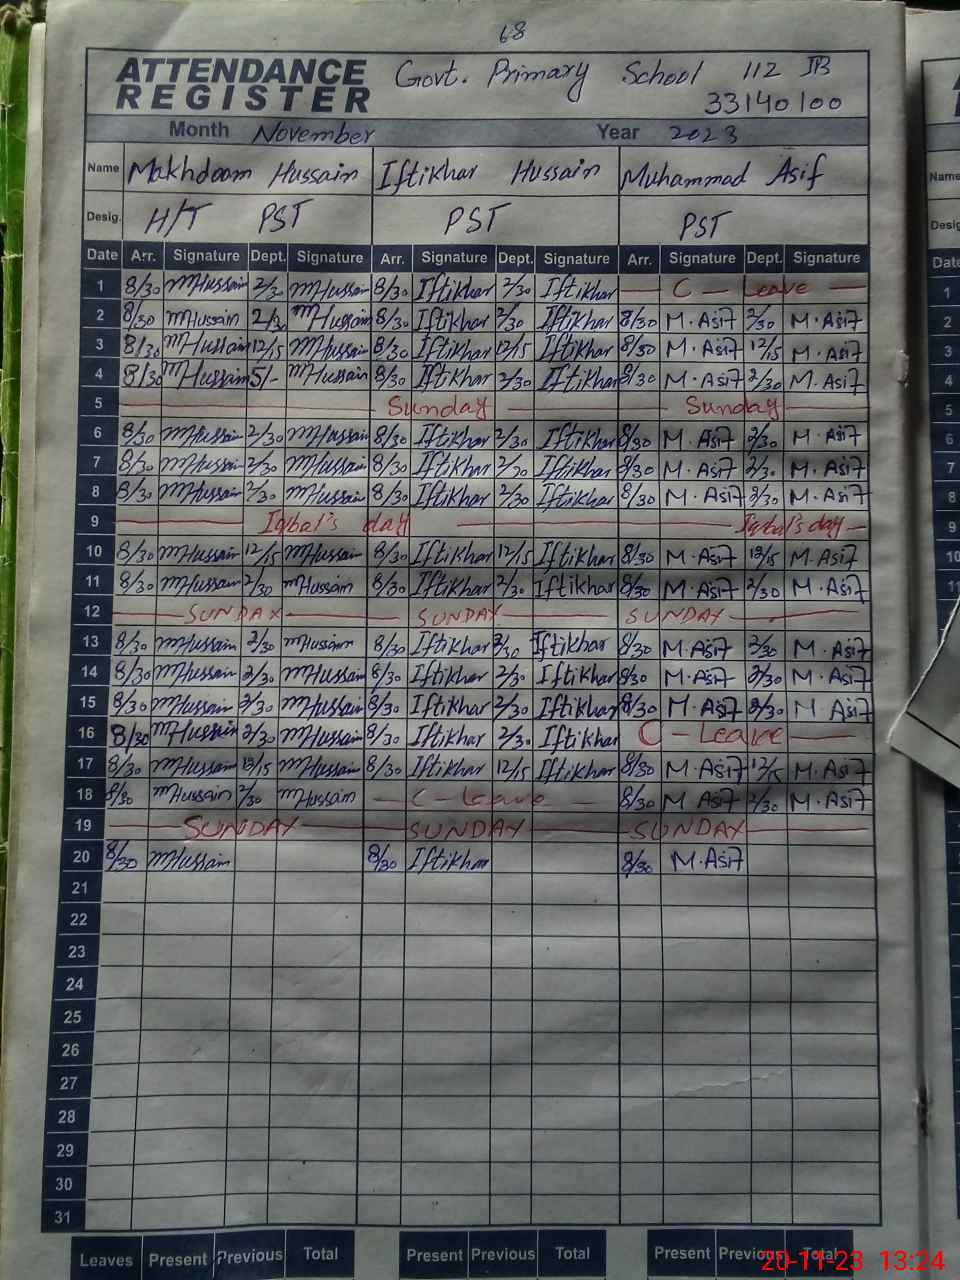 68
ATTENDANCE REGISTER Govt. Primary School 112 JB
33140100
Month November Year 2023
Name Makhdoom Hussain Iftikhar Hussain Muhammad Asif
Desig. H/T PST PST PST
Date Arr. Signature Dept. Signature Arr. Signature Dept. Signature Arr. Signature Dept. Signature
1 8/30 MHussain 2/30 MHussain 8/30 Iftikhar 2/30 Iftikhar C - Leave
2 8/30 MHussain 2/30 MHussain 8/30 Iftikhar 2/30 Iftikhar 8/30 M.Asif 2/30 M.Asif
3 8/30 MHussain 12/15 MHussain 8/30 Iftikhar 12/15 Iftikhar 8/30 M.Asif 12/15 M.Asif
4 8/30 MHussain 5/- MHussain 8/30 Iftikhar 2/30 Iftikhar 8/30 M.Asif 2/30 M.Asif
5 Sunday Sunday
6 8/30 MHussain 2/30 MHussain 8/30 Iftikhar 2/30 Iftikhar 8/30 M.Asif 2/30 M.Asif
7 8/30 MHussain 2/30 MHussain 8/30 Iftikhar 2/30 Iftikhar 8/30 M.Asif 2/30 M.Asif
8 8/30 MHussain 2/30 MHussain 8/30 Iftikhar 2/30 Iftikhar 8/30 M.Asif 2/30 M.Asif
9 Iqbal's day Iqbal's day
10 8/30 MHussain 12/15 MHussain 8/30 Iftikhar 12/15 Iftikhar 8/30 M.Asif 12/15 M.Asif
11 8/30 MHussain 2/30 MHussain 8/30 Iftikhar 2/30 Iftikhar 8/30 M.Asif 2/30 M.Asif
12 SUNDAY SUNDAY SUNDAY
13 8/30 MHussain 2/30 MHussain 8/30 Iftikhar 2/30 Iftikhar 8/30 M.Asif 2/30 M.Asif
14 8/30 MHussain 2/30 MHussain 8/30 Iftikhar 2/30 Iftikhar 8/30 M.Asif 2/30 M.Asif
15 8/30 MHussain 2/30 MHussain 8/30 Iftikhar 2/30 Iftikhar 8/30 M.Asif 2/30 M.Asif
16 8/30 MHussain 2/30 MHussain 8/30 Iftikhar 2/30 Iftikhar C - Leave
17 8/30 MHussain 12/15 MHussain 8/30 Iftikhar 12/15 Iftikhar 8/30 M.Asif 12/15 M.Asif
18 8/30 MHussain 2/30 MHussain C - Leave 8/30 M.Asif 2/30 M.Asif
19 SUNDAY SUNDAY SUNDAY
20 8/30 MHussain 8/30 Iftikhar 8/30 M.Asif
21
22
23
24
25
26
27
28
29
30
31
Leaves Present Previous Total Present Previous Total Present Previous Total
20-11-23 13:24
Name
Date
1
2
3
4
5
6
7
8
9
10